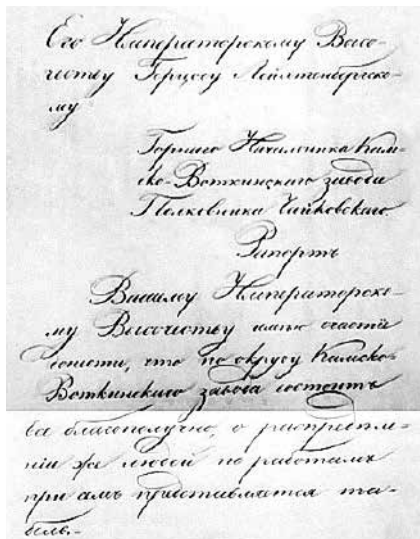 Его Императорскому Высо-
честву Герцогу Лейхтенбергско-
му
Горнаго Начальника Кам-
ско-Воткинскаго завода
Полковника Чайковскаго.
Рапортъ
Вашему Императорско-
му Высочеству имѣю счастіе
донести, что по округу Камско-
Воткинскаго завода состоитъ
все благополучно, о распредѣле-
ніи же людей по работамъ
при семъ представляется та-
бель.-